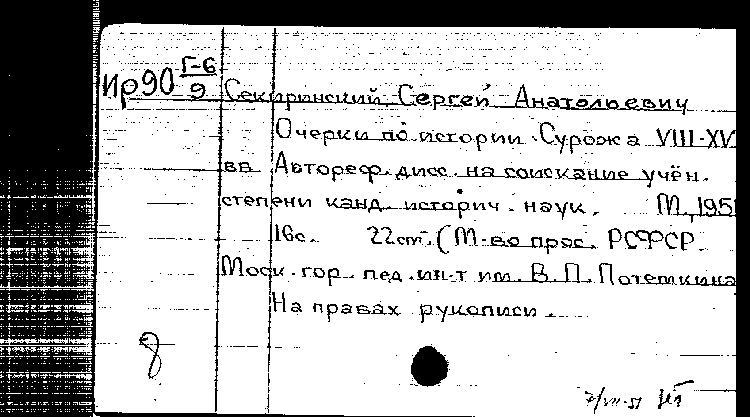 Ир90 Г-6/9
Секиринский Сергей Анатольевич
Очерки по истории Сурожа VIII-XV
вв Автореф. дисс. на соискание учён.
степени канд. историч. наук. М., 195
16с. 22см. (М-во прос. РСФСР.
Моск. гор. пед. ин-т им. В. П. Потемкина
На правах рукописи.